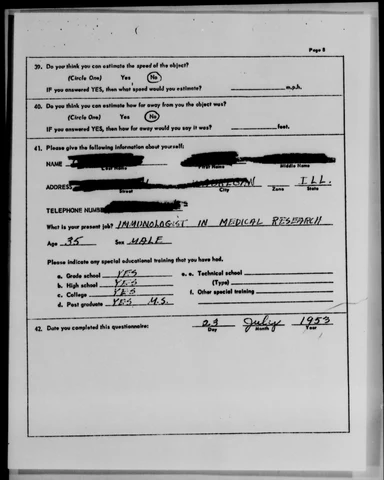 Page 8
39. Do you think you can estimate the speed of the object?
(Circle One) Yes No
IF you answered YES, then what speed would you estimate? m.p.h.
40. Do you think you can estimate how far away from you the object was?
(Circle One) Yes No
IF you answered YES, then how far away would you say it was? feet.
41. Please give the following information about yourself:
NAME
Last Name First Name Middle Name
ADDRESS ILL.
Street City Zone State
TELEPHONE NUMBER
What is your present job? IMMUNOLOGIST IN MEDICAL RESEARCH
Age 35 Sex MALE
Please indicate any special educational training that you have had.
a. Grade school YES e. Technical school
b. High school YES (Type)
c. College YES f. Other special training
d. Post graduate YES M.S.
42. Date you completed this questionnaire: 23 July 1953
Day Month Year